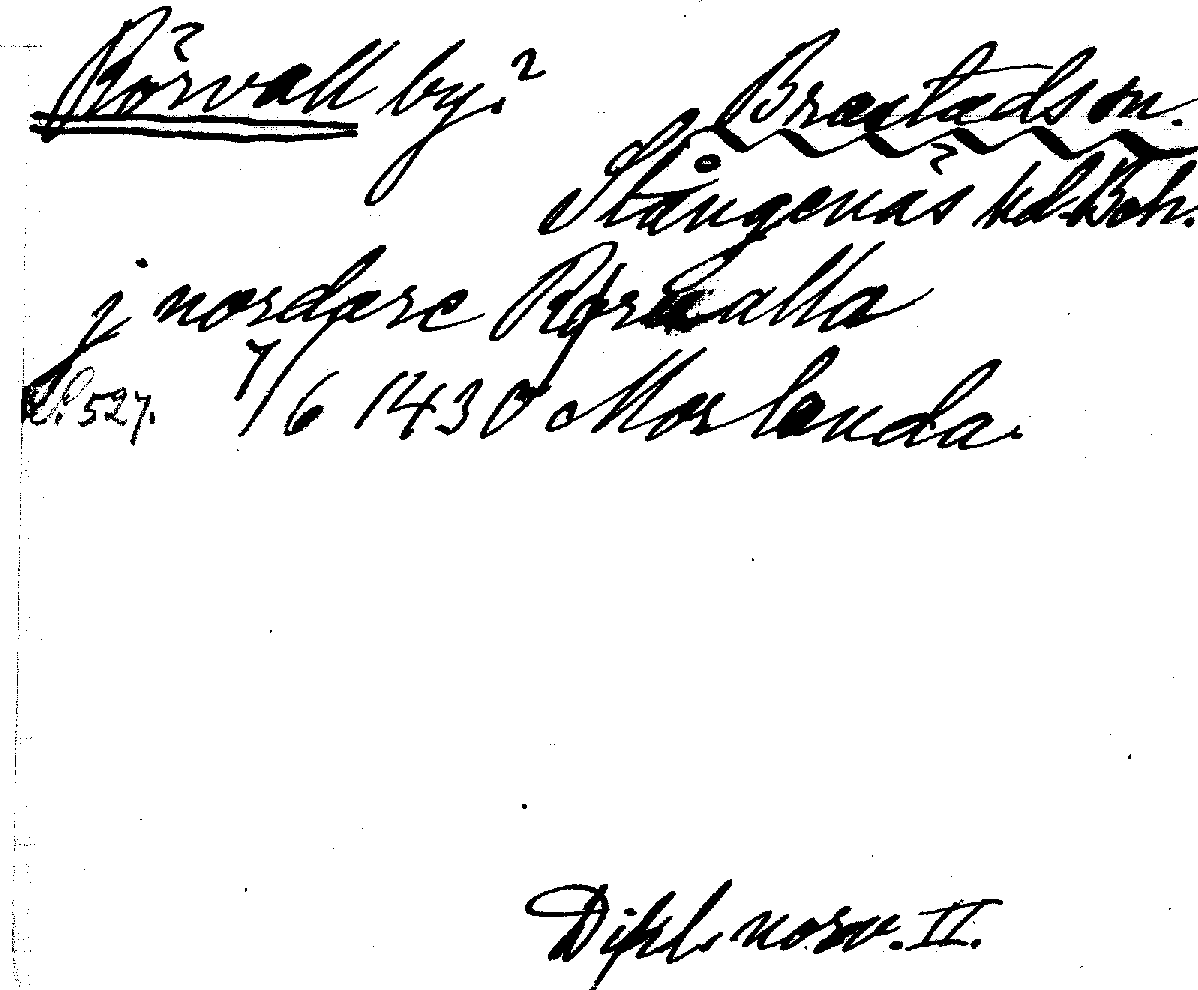 Rörvall by? Brastads sn.
Stångenäs hd. Boh.
j nordare Rørwalla
S. 527. 7/6 1430 Morlanda.
Dipl. norv. II.